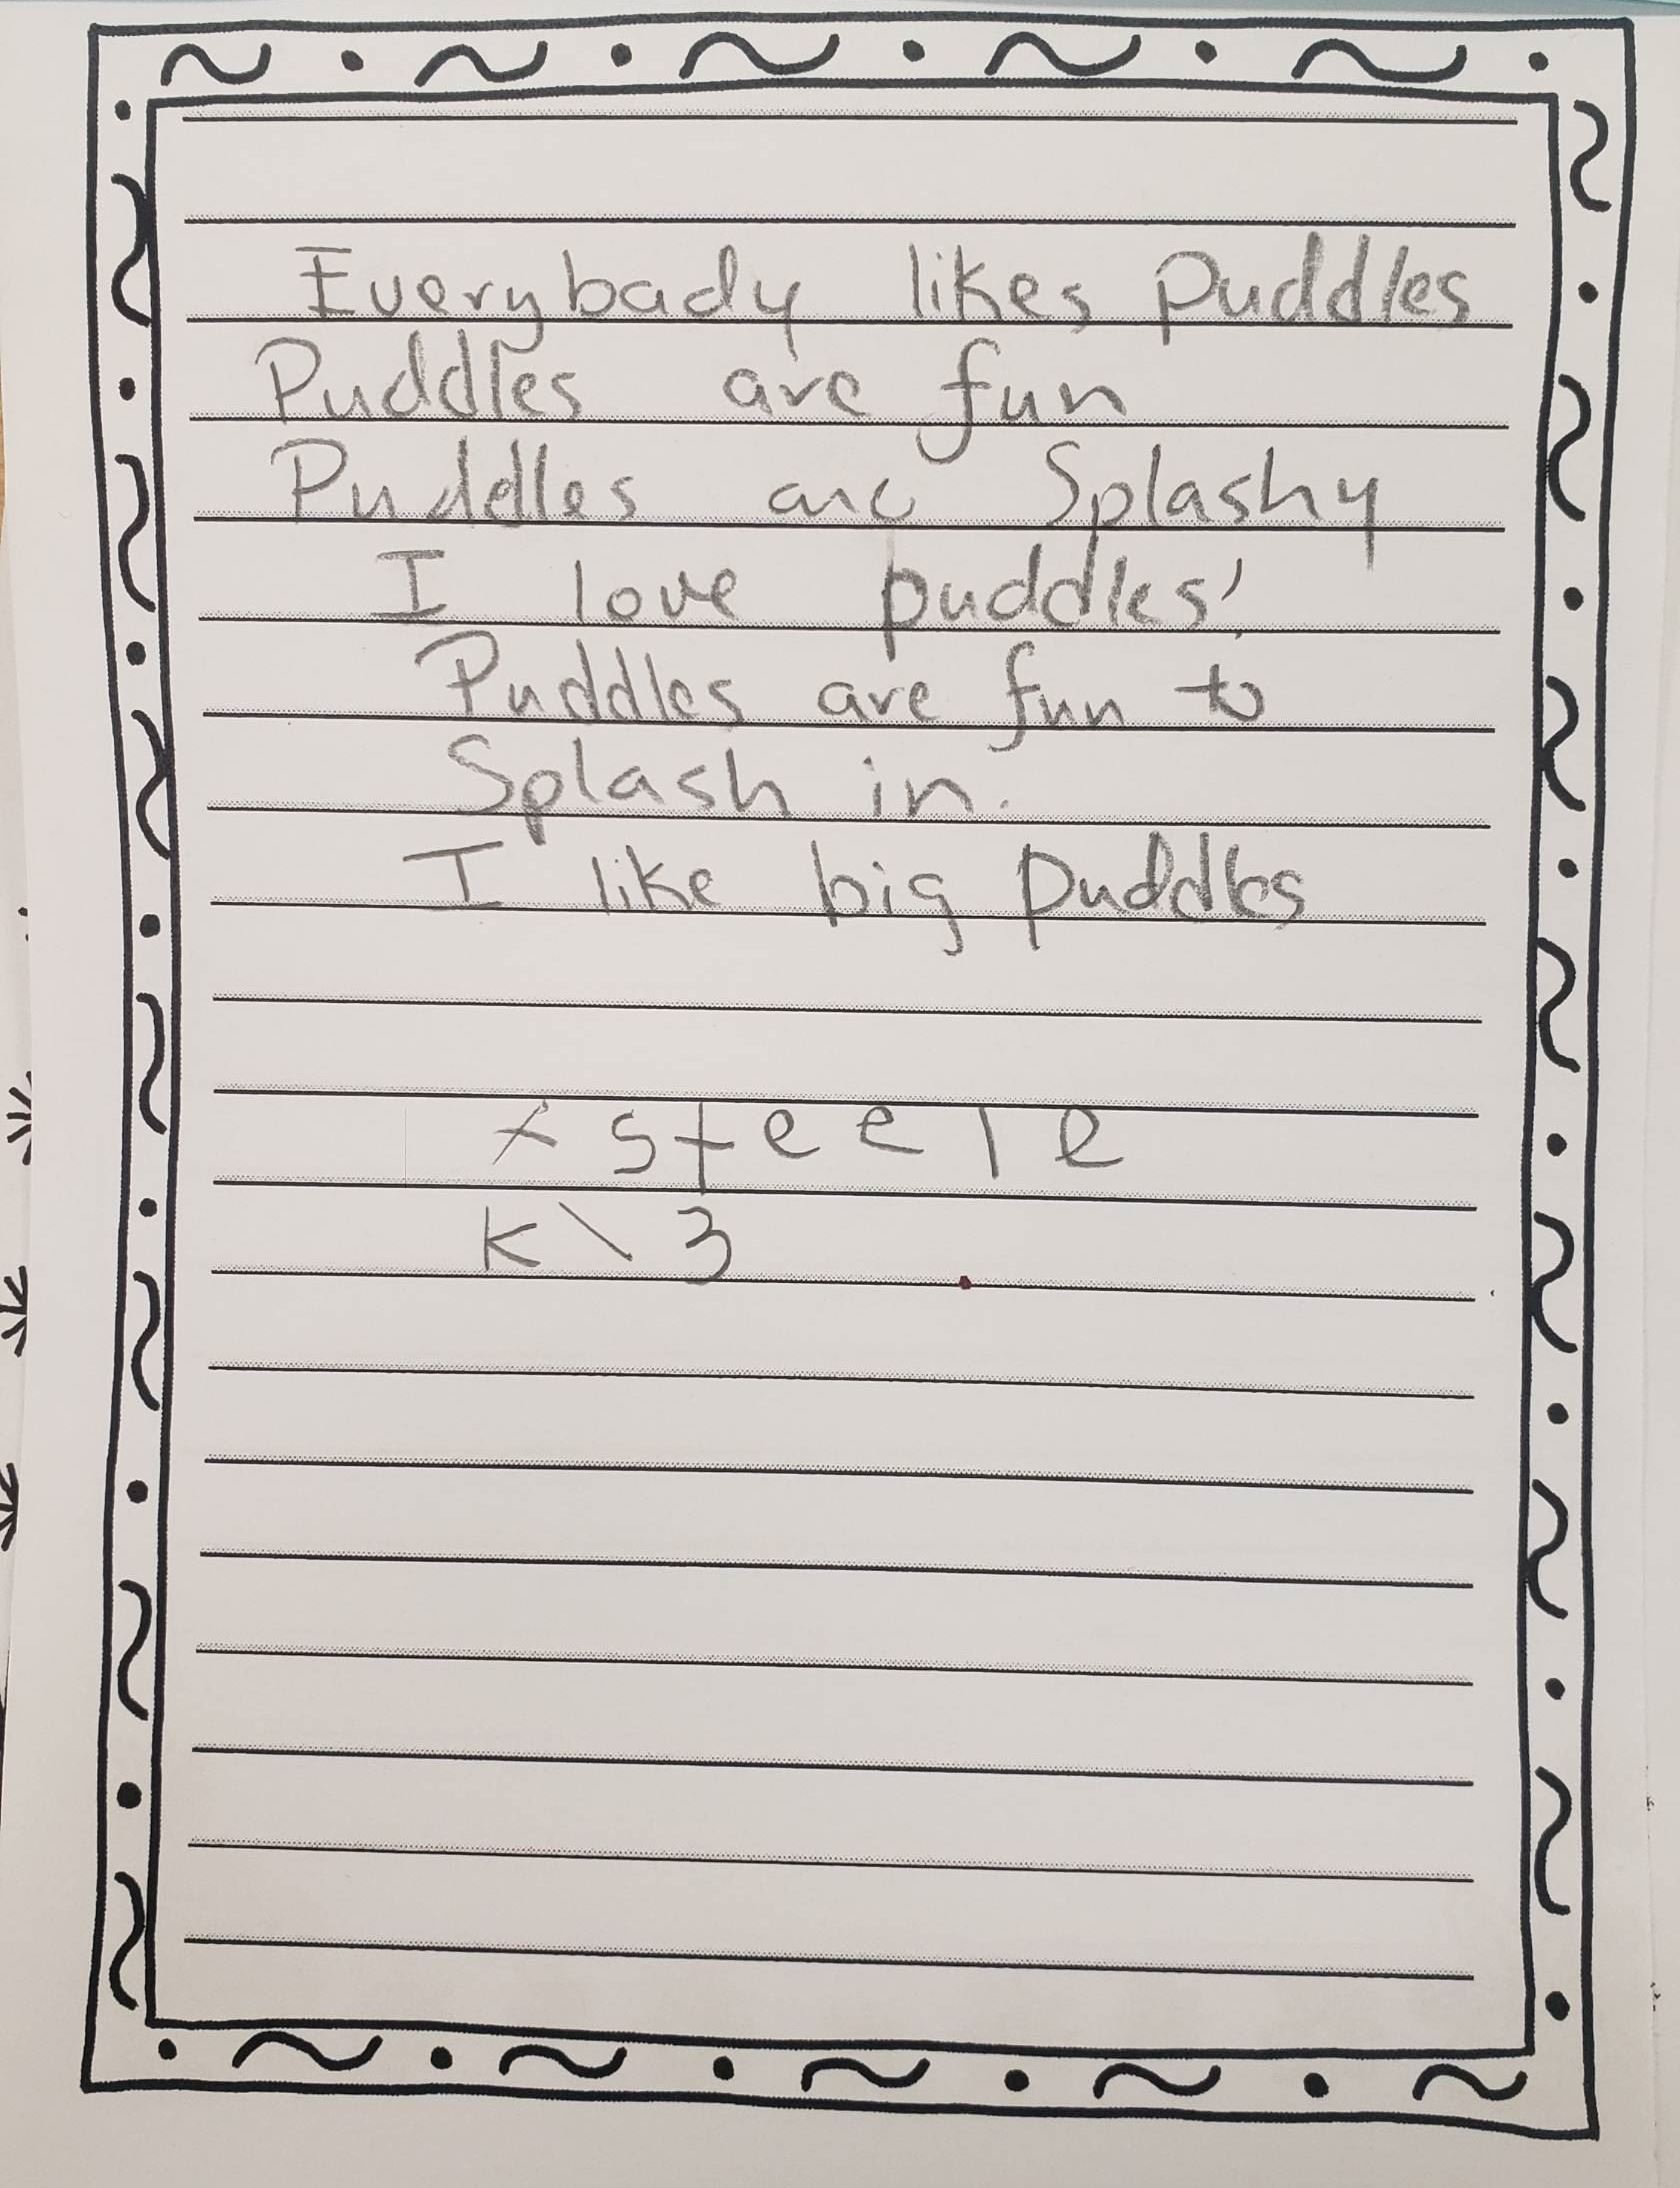 Everybady likes puddles
Puddles are fun
Puddles are Splashy
I love puddles!
Puddles are fun to
Splash in.
I like big puddles
x steele
K\3